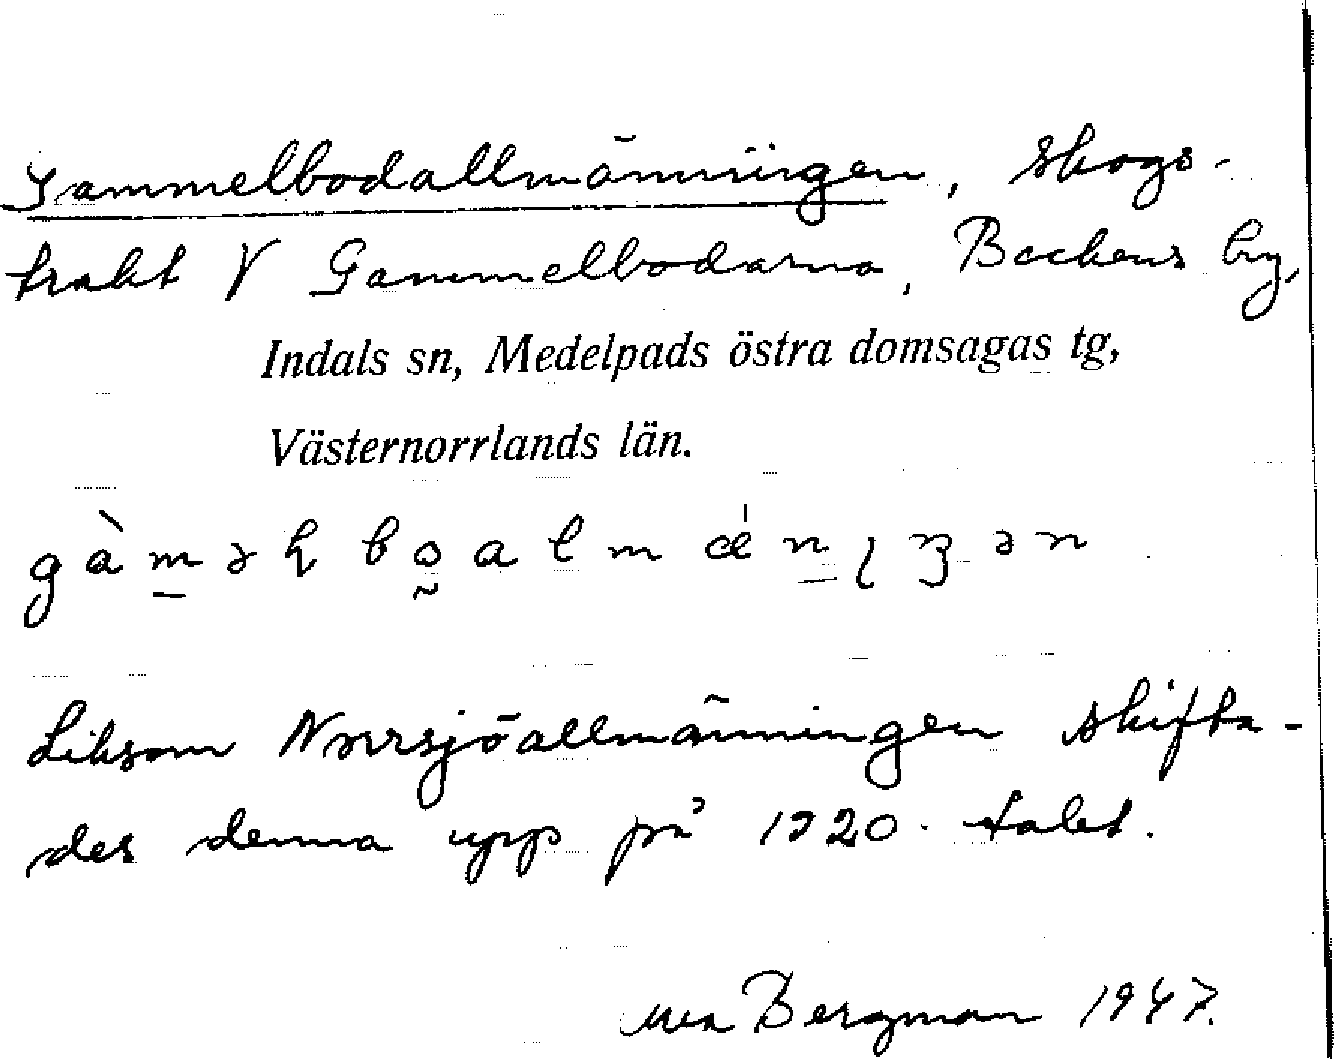 Gammelbodallmänningen, skogs-
trakt V Gammelbodarna, Backens by,
Indals sn, Medelpads östra domsagas tg,
Västernorrlands län.
Liksom Norrsjöallmänningen skifta-
des denna upp på 1920-talet.
Bergman 1947.